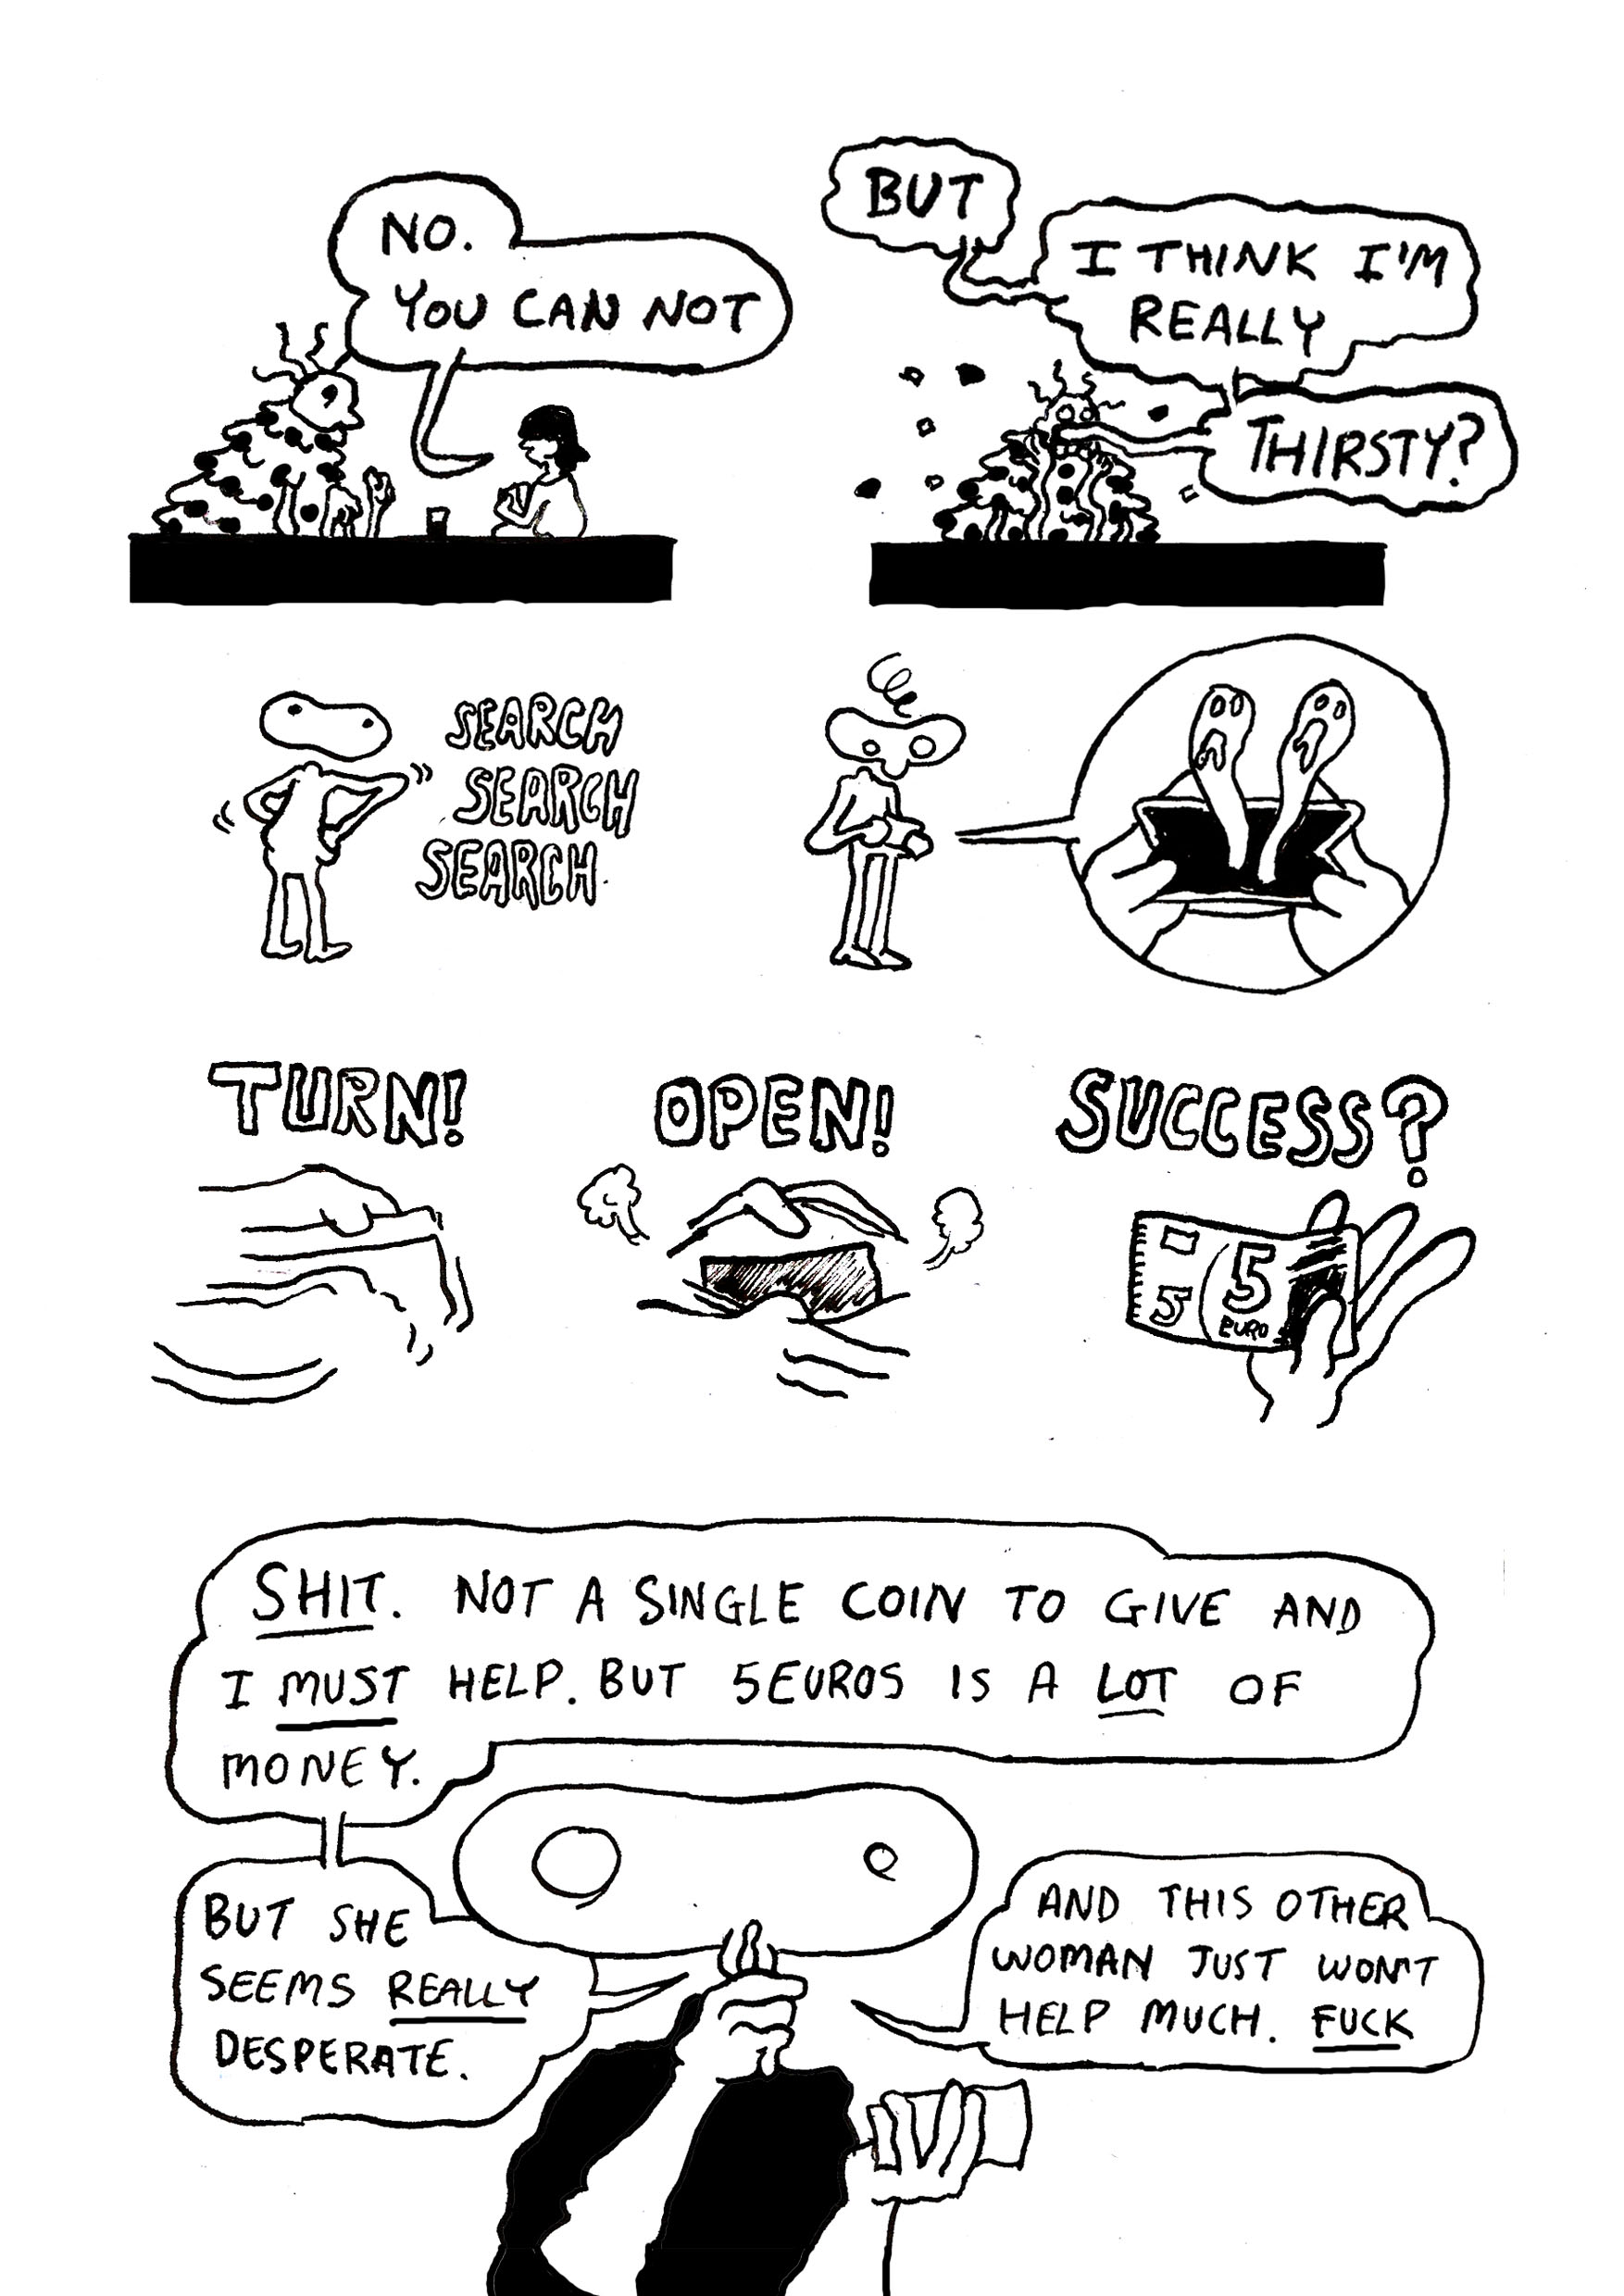 NO.
YOU CAN NOT
BUT
I THINK I'M
REALLY
THIRSTY?
SEARCH
SEARCH
SEARCH.
TURN!
OPEN!
SUCCESS?
5
5
EURO
SHIT. NOT A SINGLE COIN TO GIVE AND
I MUST HELP. BUT 5EUROS IS A LOT OF
MONEY.
BUT SHE
SEEMS REALLY
DESPERATE.
AND THIS OTHER
WOMAN JUST WON'T
HELP MUCH. FUCK